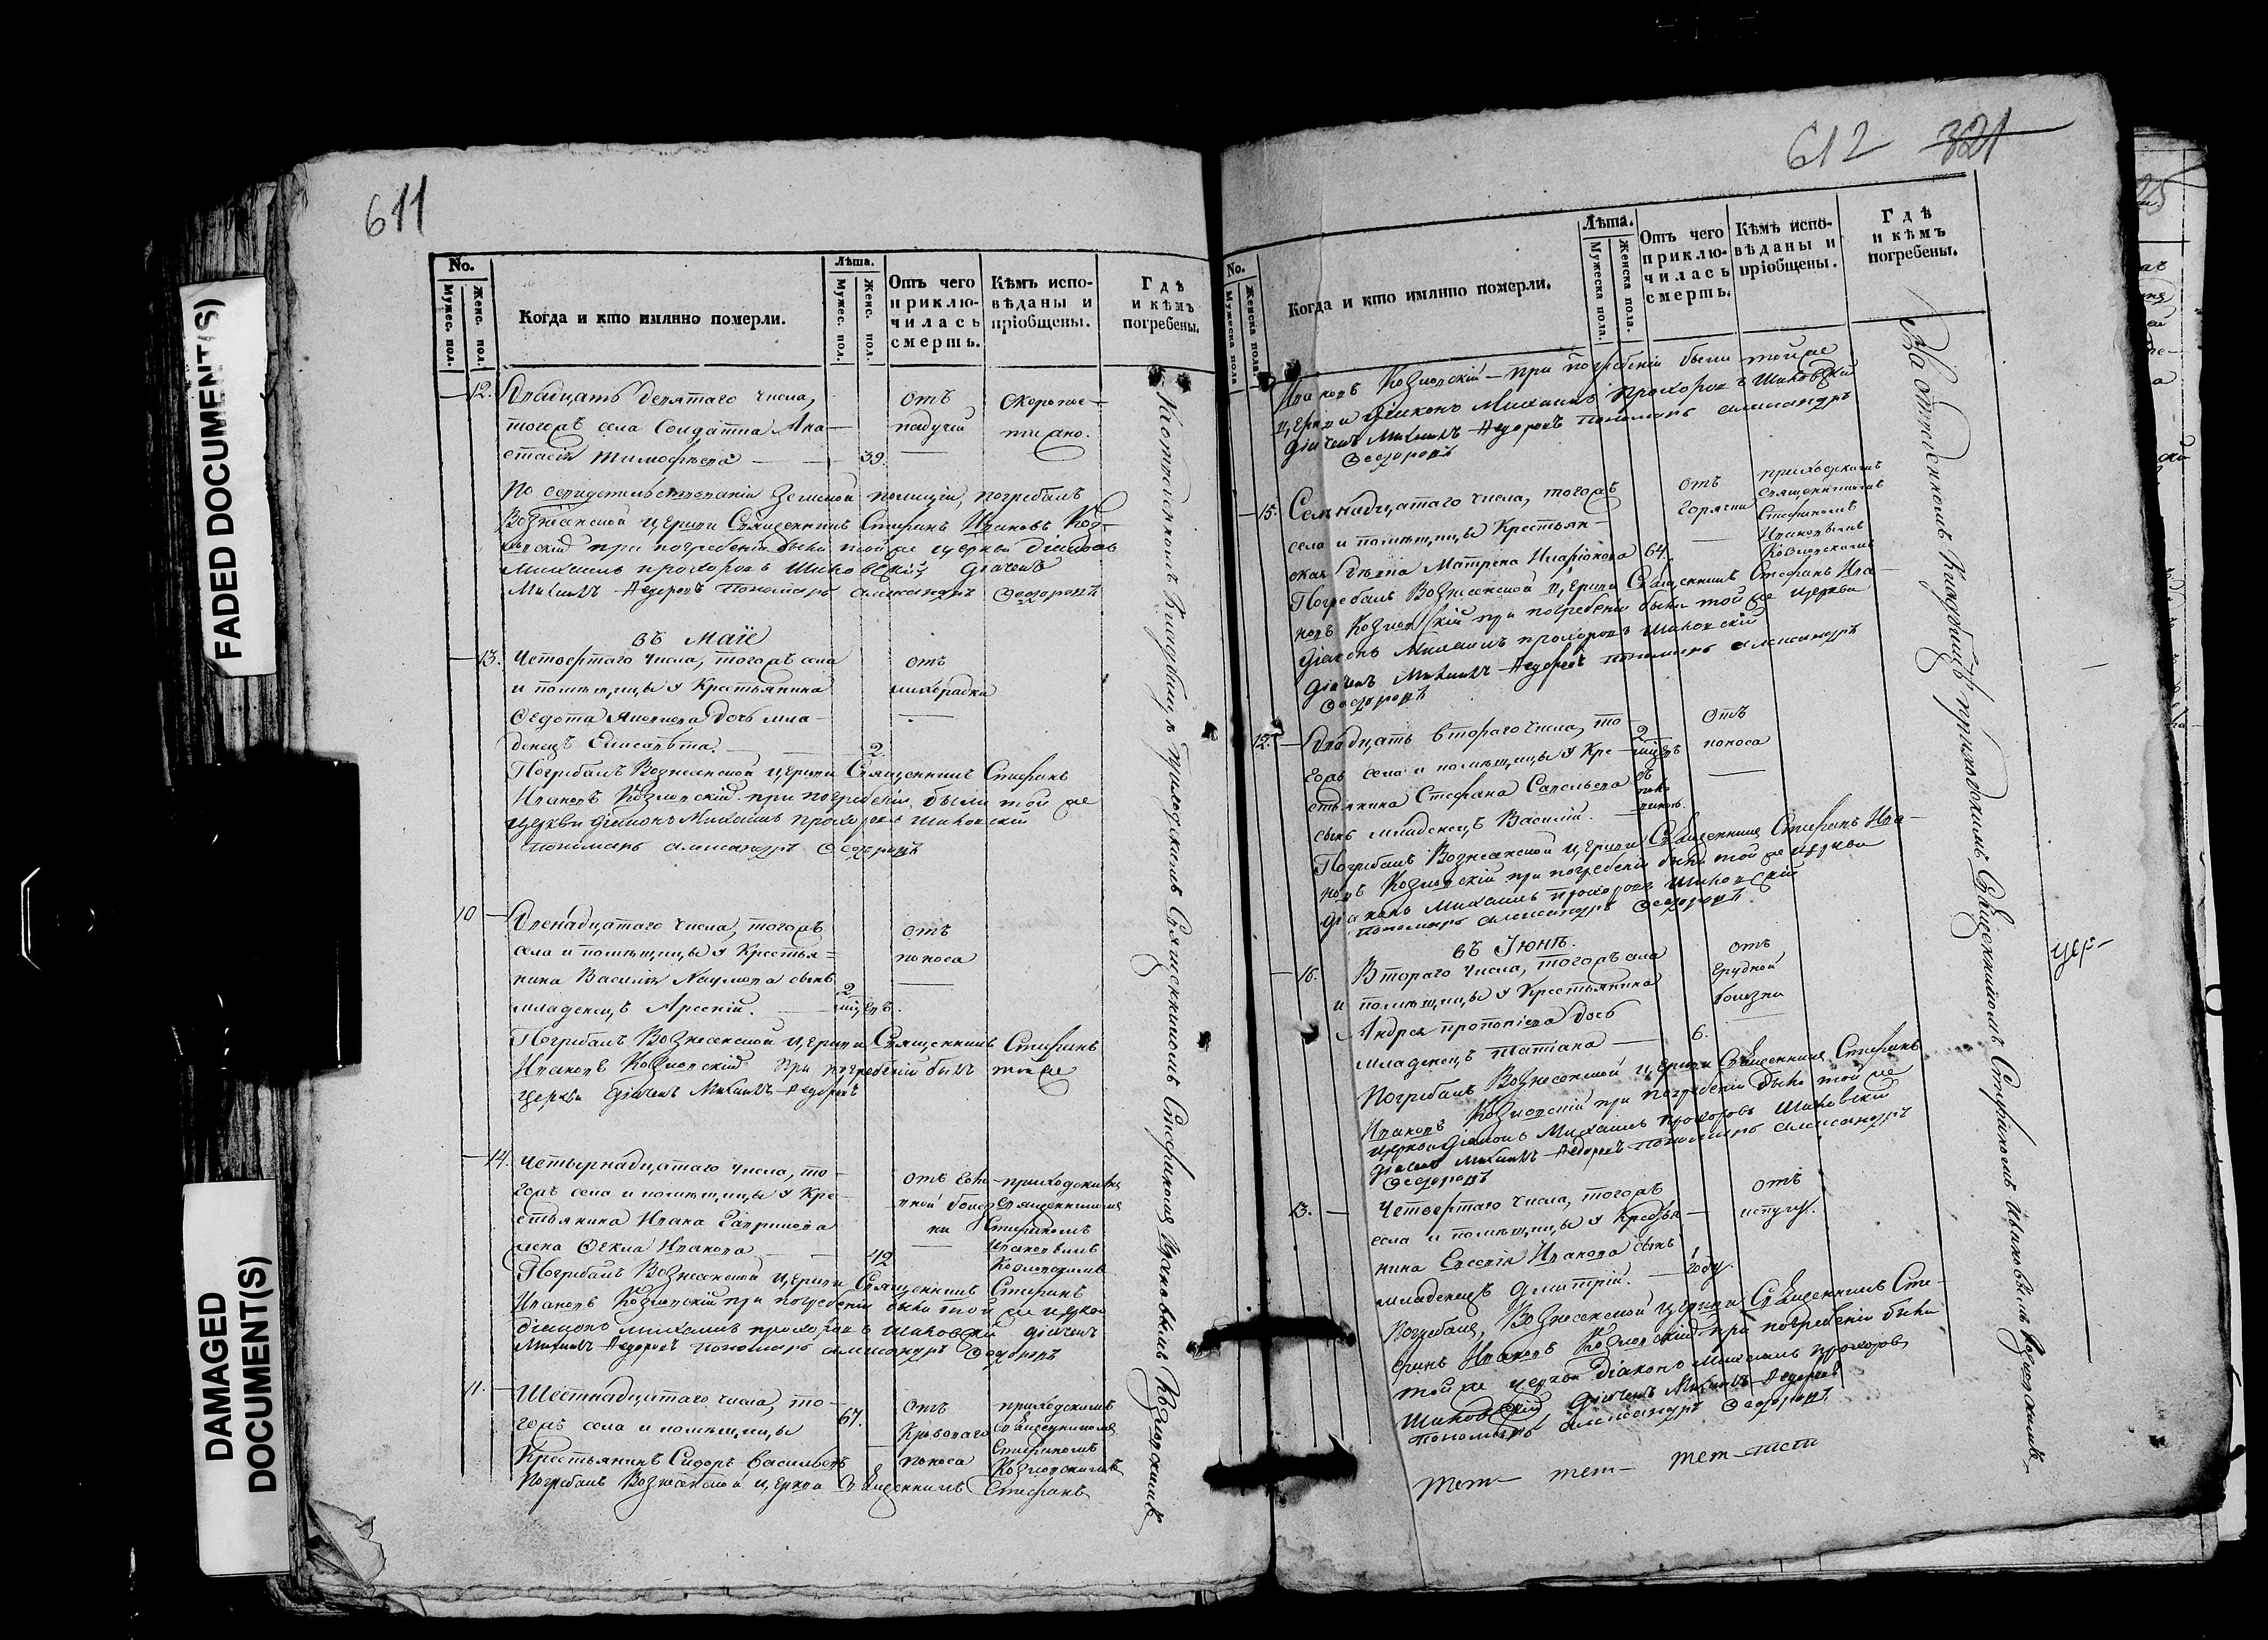 FADED DOCUMENT(S)
DAMAGED
DOCUMENT(S)
611
No.
Мужес. пол.
Женс. пол.
Когда и кто имянно померли.
Лѣта.
Мужес. пол.
Женс. пол.
Отъ чего
приклю-
чилась
смерть.
Кѣмъ испо-
вѣданы и
пріобщены.
Гдѣ
и кѣмъ
погребены.
12. Двадцать девятаго числа,
тогожъ села Солдатка Ана-
стасія Тимофѣева 39.
отъ
падучей
скоропос-
тижно.
По свидетельствованіи Земской полиціи, погребалъ
Вознесенской церкви Священникъ Стефанъ Ивановъ Коз-
ловскій при погребеніи были той же церкви діаконъ
Михаилъ Прохоровъ Шиховскій дьячекъ
Михаилъ Федоровъ пономарь Александръ Ѳеодоровъ
въ Маіе
13. Четвертаго числа, тогожъ села
и помѣщицы у Крестьянина
Федота Яковлева дочь мла-
денецъ Елисавѣта. 2.
отъ
лихорадки
Погребалъ Вознесенской церкви Священникъ Стефанъ
Ивановъ Козловскій при погребеніи были той же
церкви діаконъ Михаилъ Прохоровъ Шиховскій
пономарь Александръ Ѳеодоровъ
10 Двенадцатаго числа, тогожъ
села и помѣщицы у Крестья-
нина Василія Наумова сынъ
младенецъ Арсеній. 2
отъ
поноса
Погребалъ Вознесенской церкви Священникъ Стефанъ
Ивановъ Козловскій при погребеніи былъ той же
церкви дьячекъ Михаилъ Федоровъ
14. Четырнадцатаго числа, то-
гожъ села и помѣщицы у Кре-
стьянина Ивана Гаврилова
жена Фекла Иванова 42
приходскимъ
Священникомъ
Стефаномъ
Ивановымъ
Козловскимъ
Погребалъ Вознесенской церкви Священникъ Стефанъ
Ивановъ Козловскій при погребеніи были той же церкви
діаконъ Михаилъ Прохоровъ Шиховскій дьячекъ
Михаилъ Федоровъ пономарь Александръ Ѳеодоровъ
11. Шестнадцатаго числа, то-
гожъ села и помѣщицы 67.
Крестьянинъ Сидоръ Васильевъ
отъ
Кроваваго
поноса
приходскимъ
Священникомъ
Стефаномъ
Козловскимъ
Погребалъ Вознесенской церкви Священникъ Стефанъ
Священникомъ Стефаномъ Ивановымъ Козловскимъ
612 321
No.
Мужеска пола
Женска пола.
Когда и кто имянно померли.
Лѣта.
Мужеска пола.
Женска пола.
Отъ чего
приклю-
чилась
смерть.
Кѣмъ испо-
вѣданы и
пріобщены.
Гдѣ
и кѣмъ
погребены.
Ивановъ Козловскій при погребеніи были той же
церкви діаконъ Михаилъ Прохоровъ Шиховскій
дьячекъ Михаилъ Федоровъ пономарь Александръ
Ѳеодоровъ
15. Семнадцатаго числа, тогожъ
села и помѣщицы Крестьян-
ская Матрена Иларіонова 64.
отъ
горячки
приходскимъ
Священникомъ
Стефаномъ
Ивановымъ
Козловскимъ
Погребалъ Вознесенской церкви Священникъ Стефанъ Ива-
новъ Козловскій при погребеніи были той же церкви
діаконъ Михаилъ Прохоровъ Шиховскій
дьячекъ Михаилъ Федоровъ пономарь Александръ
Ѳеодоровъ
12. Двадцать втораго числа, то-
гожъ села и помѣщицы у Кре-
стьянина Стефана Савельева
сынъ младенецъ Василій. 2
отъ
поноса
Погребалъ Вознесенской церкви Священникъ Стефанъ Ива-
новъ Козловскій при погребеніи были той же церкви
діаконъ Михаилъ Прохоровъ Шиховскій
пономарь Александръ Ѳеодоровъ
въ Іюнѣ.
16. Втораго числа, тогожъ села
и помѣщицы у Крестьянина
Андрея Прокопіева дочь
младенецъ Татіана 6.
отъ
грудной
болезни
Погребалъ Вознесенской церкви Священникъ Стефанъ
Ивановъ Козловскій при погребеніи были той же
церкви діаконъ Михаилъ Прохоровъ Шиховскій
дьячекъ Михаилъ Федоровъ пономарь Александръ
Ѳеодоровъ
13. Четвертаго числа, тогожъ
села и помѣщицы у Крестья-
нина Евсевія Иванова сынъ
младенецъ Димитрій. 1 году.
отъ
испугу.
Погребалъ Вознесенской церкви Священникъ Сте-
фанъ Ивановъ Козловскій при погребеніи были
той же церкви діаконъ Михаилъ Прохоровъ
Шиховскій дьячекъ Михаилъ Федоровъ
пономарь Александръ Ѳеодоровъ.
На отведенномъ Кладбищѣ приходскимъ Священникомъ Стефаномъ Ивановымъ Козловскимъ
цер-